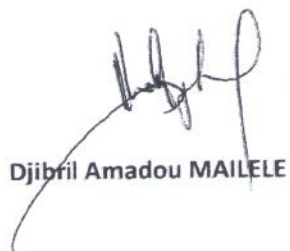 Djibril Amadou MAILELE